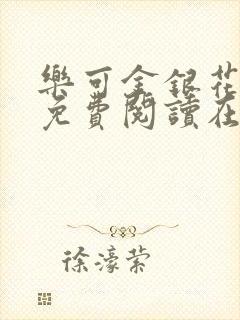 樂可金銀花
免費閱讀在
徐濠縈